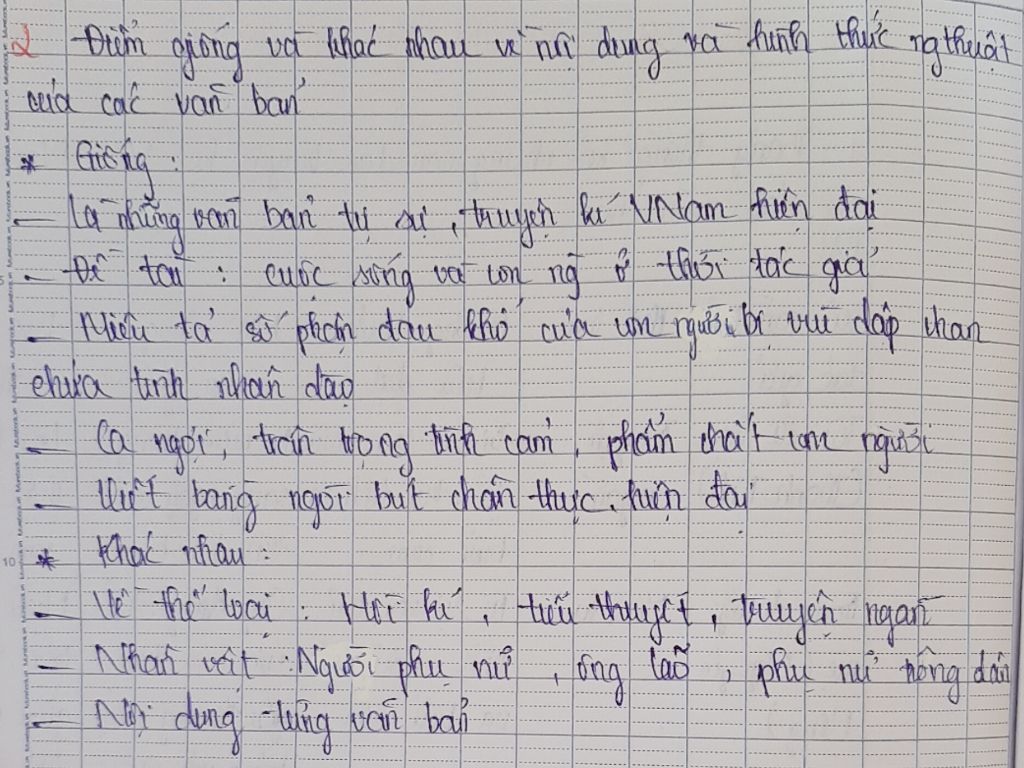 2 Điểm giống và khác nhau về nội dung và hình thức nghthuật
của các văn bản
* Giống :
- Là những văn bản tự sự , truyện kí VNam hiện đại
- Đề tài : cuộc sống và con ng ở thời tác giả
- Miêu tả số phận đau khổ của con người bị vùi dập chan
chứa tinh nhân đạo
- Ca ngợi , trân trọng tình cảm , phẩm chất con người
- Viết bằng ngòi bút chân thực , hiện đại
10 * Khác nhau :
- Về thể loại : Hồi kí , tiểu thuyết , truyện ngắn
- Nhân vật : Người phụ nữ , ông lão , phụ nữ nông dân
- Nội dung từng văn bản